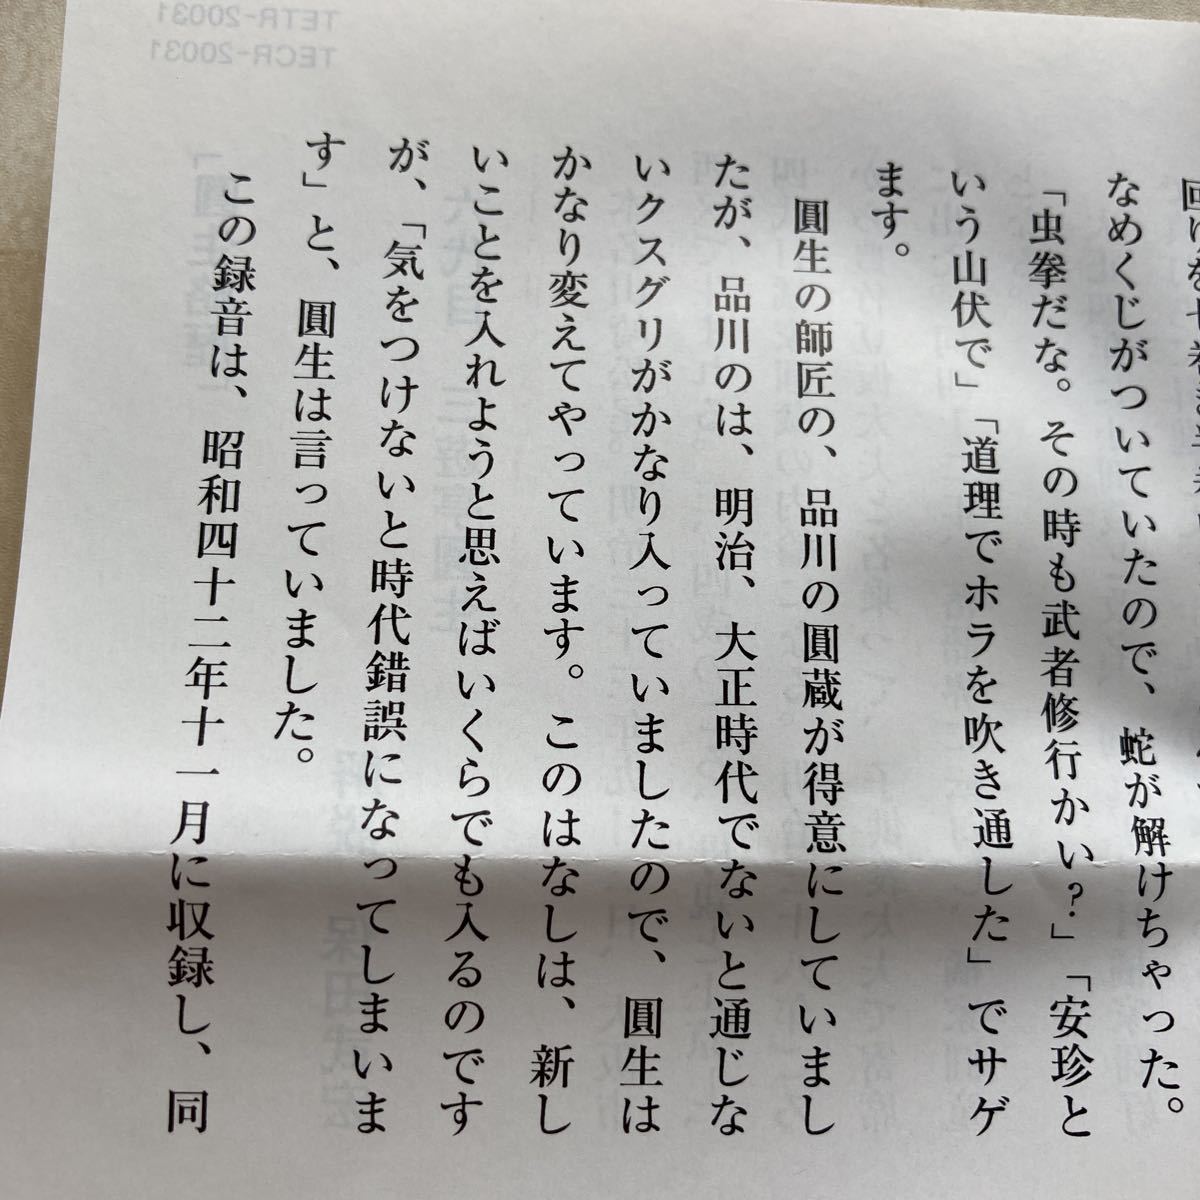 なめくじがついていたので、蛇が解けちゃった。
「虫拳だな。その時も武者修行かい？」「安珍と
いう山伏で」「道理でホラを吹き通した」でサゲ
ます。
圓生の師匠の、品川の圓蔵が得意にしていまし
たが、品川のは、明治、大正時代でないと通じな
いクスグリがかなり入っていましたので、圓生は
かなり変えてやっています。このはなしは、新し
いことを入れようと思えばいくらでも入るのです
が、「気をつけないと時代錯誤になってしまいま
す」と、圓生は言っていました。
この録音は、昭和四十二年十一月に収録し、同
TETR-20031
TECR-20031